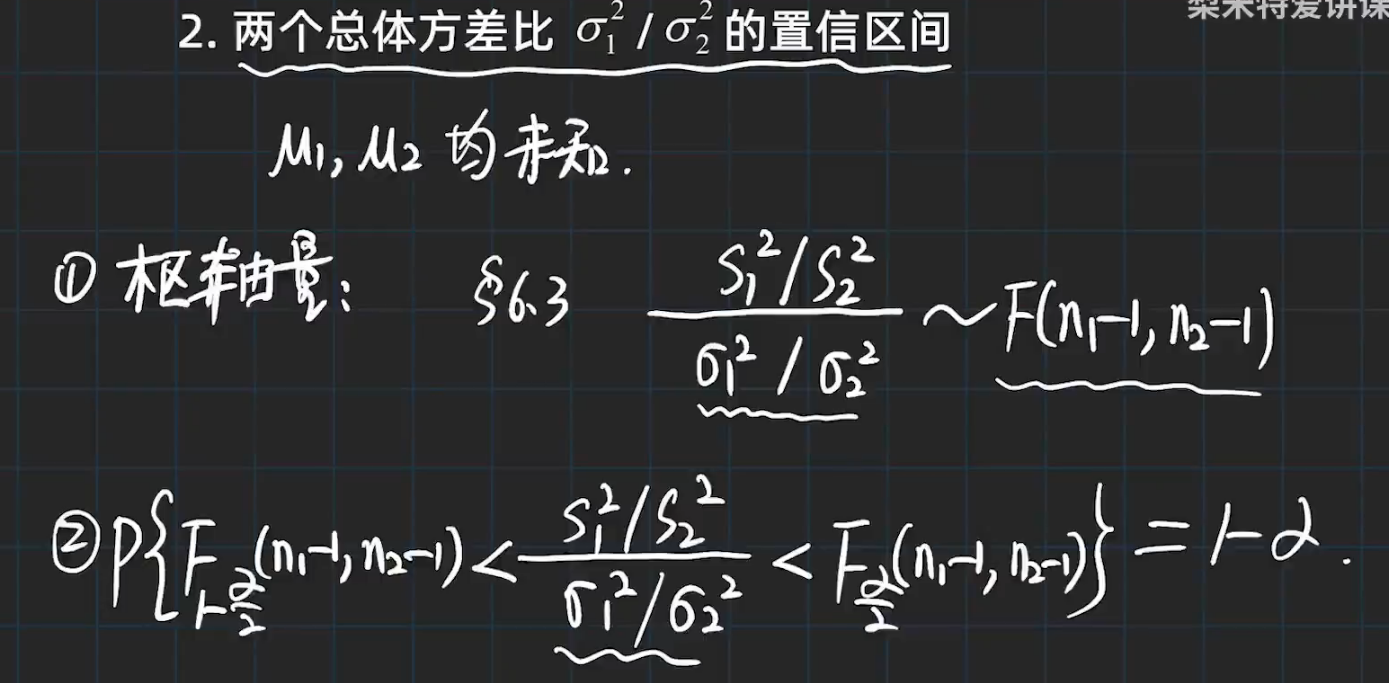 梨米特爱讲课
2. 两个总体方差比 σ₁² / σ₂² 的置信区间
μ₁, μ₂ 均未知.
① 枢轴量: §6.3 (S₁²/S₂²)/(σ₁²/σ₂²) ~ F(n₁-1, n₂-1)
② P{F_{1-α/2}(n₁-1, n₂-1) < (S₁²/S₂²)/(σ₁²/σ₂²) < F_{α/2}(n₁-1, n₂-1)} = 1-α.